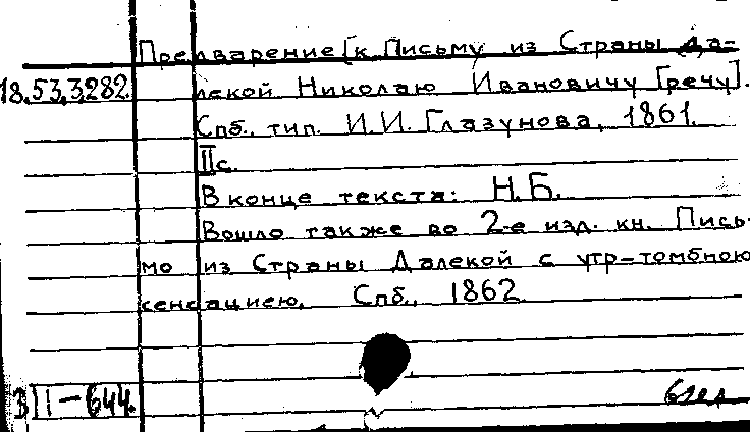 Предварение [к Письму из Страны Да-
18.53.3.282. лекой Николаю Ивановичу [речу].
Спб., тип. И.И. Глазунова, 1861.
IIс.
В конце текста: Н.Б.
Вошло также во 2-е изд. кн. Пись-
мо из Страны Далекой с утр-томбною
сенсациею. Спб., 1862.
II-644.